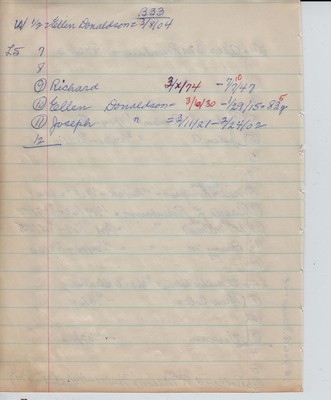 1333
W 1/2 = Ellen Donaldson = 3/8/04
L5 7
8
9 Richard 3/x/74 - 7/7/47 10
10 Ellen Donaldson = 3/6/30 - 1/29/15 = 83y 5
11 Joseph " = 3/11/21 - 2/24/02
12